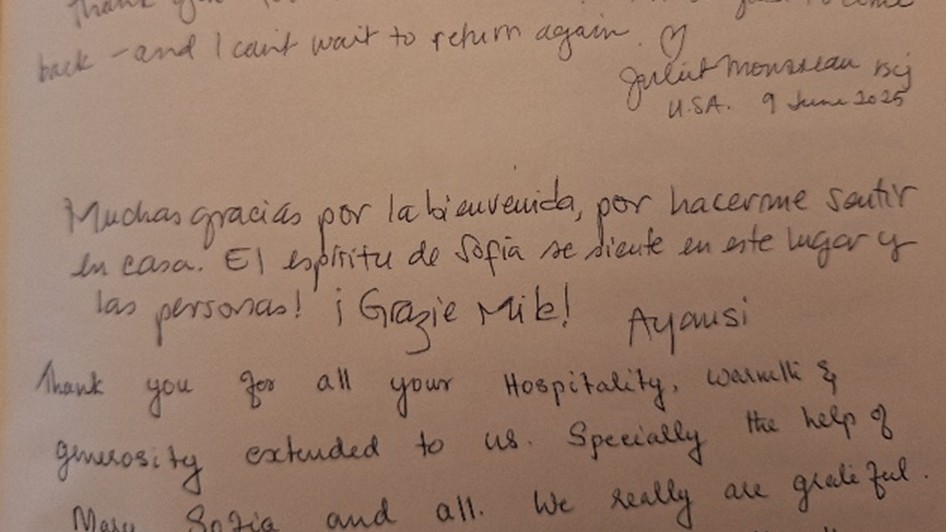 Thank you
back - and I can't wait to return again. ♡
Juliet Mousseau rscj
U.S.A. 9 June 2025
Muchas gracias por la bienvenida, por hacerme sentir
en casa. El espiritu de Sofia se siente en este lugar y
las personas! ¡Grazie Mile!
Ayansi
Thank you for all your Hospitality, warmth &
generosity extended to us. Specially the help of
Mary Sofia and all. We really are grateful.